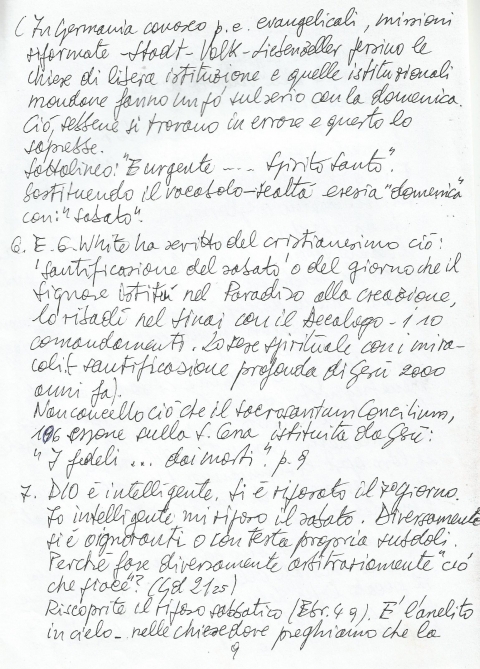 ( In Germania conosco p.e. evangelicali, missioni
riformate - Stadt - Volk - Liebenzeller persino le
chiese di libera istituzione e quelle istituzionali
mondane fanno un pó sul serio con la domenica.
Ció, sebbene si trovano in errore e questo lo
sapesse.
Sottolineo: "E urgente --- Spirito Santo".
Sostituendo il vocabolo - realtá eresia "domenica"
con: "sabato".
6. E. G. White ha scritto del cristianesimo ció:
'santificazione del sabato' o del giorno che il
Signore istituí nel Paradiso alla creazione,
lo ribadí nel Sinai con il Decalogo - i 10
comandamenti. Lo rese spirituale con i mira-
coli (- santificazione profonda di Gesú 2000
anni fa).
Non cancello ció che il Sacrosantum Concilium,
106 espone sulla S. Cena istituita da Gesú:
" I fedeli ... dai morti". p. 9
7. DIO é intelligente. Si é riposato il 7º giorno.
Io intelligente mi riposo il sabato. Diversamente
si é ignoranti o con testa propria subdoli.
Perché fare diversamente arbitrariamente "ció
che piace"? (Gd 21 25)
Riscoprite il riposo sabbatico (Ebr. 4 9). E' l'anelito
in cielo - nelle chiese dove preghiamo che la
9